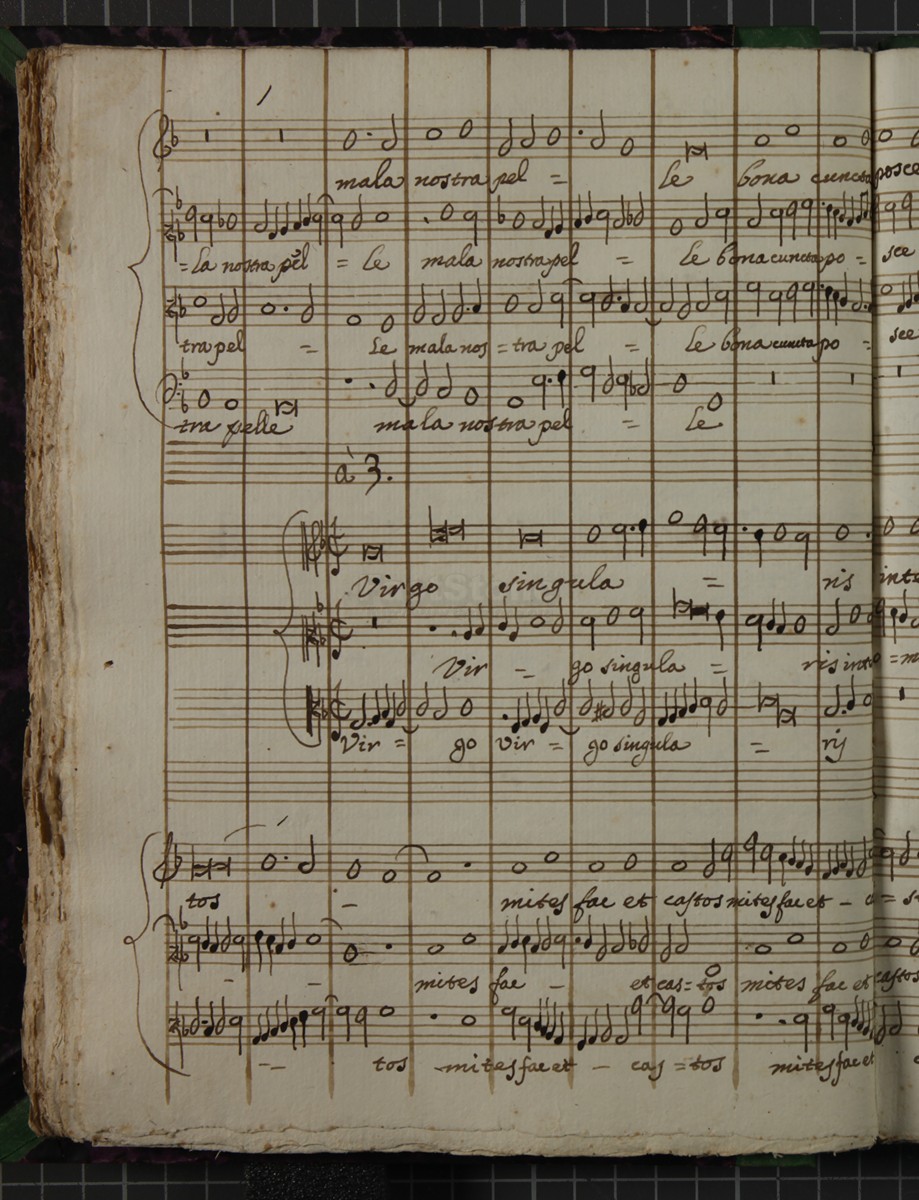 mala nostra pel = le bona cuncta posce
= la nostra pel = le mala nostra pel = le bona cuncta po = sce
tra pel = le mala nos = tra pel = le bona cuncta po = sce
tra pelle mala nostra pel = le
à 3.
Virgo singula = ris
Vir - go singula = ris
Vir = go vir = go singula = ris
tos - mites fac et castos mites fac et -
- - mites fac - et cas = tos mites fac et castos
-- tos mites fac et - cas = tos mites fac et